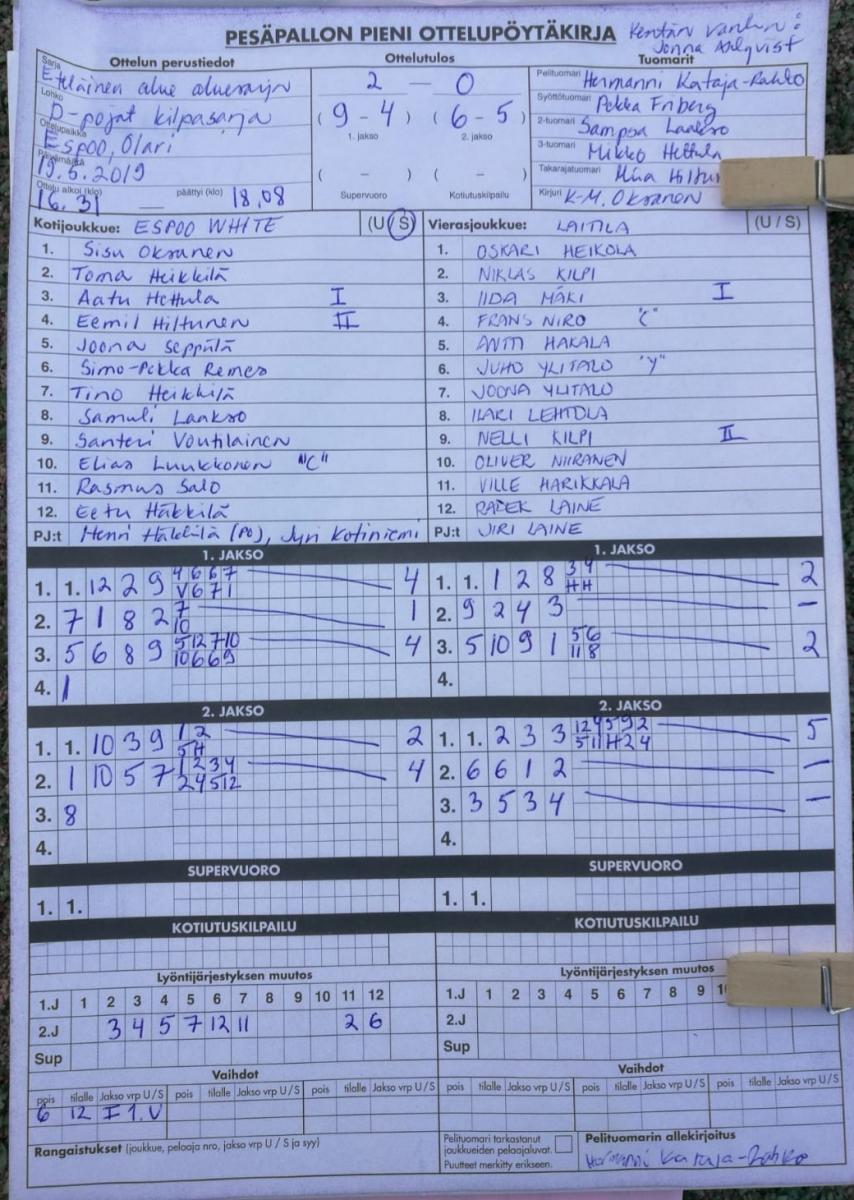 PESÄPALLON PIENI OTTELUPÖYTÄKIRJA
Kentän vanhin:
Jonna Ahlqvist
Ottelun perustiedot
Ottelutulos
Tuomarit
Sarja Eteläinen alue aluesarja
Lohko D-pojat kilpasarja
Ottelupaikka Espoo, Olari
Päivämäärä 19.5.2019
Ottelu alkoi (klo) 16.31 päättyi (klo) 18.08
2 — 0
(9 - 4) (6 - 5)
1. jakso 2. jakso
( - ) ( - )
Supervuoro Kotiutuskilpailu
Pelituomari Hermanni Kataja-Rahko
Syöttötuomari Pekka Friberg
2-tuomari Sampsa Laakso
3-tuomari Mikko Hettula
Takarajatuomari Miia Hiltun
Kirjuri K-M. Oksanen
Kotijoukkue: ESPOO WHITE (U / S)
1. Sisu Oksanen
2. Toma Heikkilä
3. Aatu Hettula I
4. Eemil Hiltunen II
5. Joona Seppälä
6. Simo-Pekka Remes
7. Tino Heikkilä
8. Samuli Laakso
9. Santeri Voutilainen
10. Elias Luukkonen "C"
11. Rasmus Salo
12. Eetu Häkkilä
PJ:t Henri Häkkilä (PO), Jyri Kotiniemi
Vierasjoukkue: LAITILA (U / S)
1. OSKARI HEIKOLA
2. NIKLAS KILPI
3. IIDA MÄKI I
4. FRANS NIRO "C"
5. ANTTI HAKALA
6. JUHO YLITALO "Y"
7. JOONA YLITALO
8. ILARI LEHTOLA
9. NELLI KILPI II
10. OLIVER NIIRANEN
11. VILLE HARIKKALA
12. RADEK LAINE
PJ:t JIRI LAINE
1. JAKSO
1. 1. 12 2 9 4 6 6 7 4
V 6 7 1
2. 7 1 8 2 7 1
10
3. 5 6 8 9 5 12 7 10 4
10 6 6 9
4. 1
1. JAKSO
1. 1. 1 2 8 3 4 2
H H
2. 9 2 4 3 –
3. 5 10 9 1 5 6 2
11 8
4.
2. JAKSO
1. 1. 10 3 9 1 2 2
5 H
2. 1 10 5 7 1 2 3 4 4
2 4 5 12
3. 8
4.
2. JAKSO
1. 1. 2 3 3 12 4 5 9 2 5
5 11 H 2 4
2. 6 6 1 2 –
3. 3 5 3 4 –
4.
SUPERVUORO
1. 1.
SUPERVUORO
1. 1.
KOTIUTUSKILPAILU
KOTIUTUSKILPAILU
Lyöntijärjestyksen muutos
1.J 1 2 3 4 5 6 7 8 9 10 11 12
2.J 3 4 5 7 12 11 2 6
Sup
Lyöntijärjestyksen muutos
1.J 1 2 3 4 5 6 7 8 9
2.J
Sup
Vaihdot
pois tilalle Jakso vrp U / S pois tilalle Jakso vrp U / S pois tilalle Jakso vrp U / S
6 12 I 1.U
Vaihdot
pois tilalle Jakso vrp U / S pois tilalle Jakso vrp U / S pois tilalle Jakso vrp U / S
Rangaistukset (joukkue, pelaaja nro, jakso vrp U / S ja syy)
Pelituomari tarkastanut
joukkueiden pelaajaluvat.
Puutteet merkitty erikseen.
Pelituomarin allekirjoitus
Hermanni Kataja-Rahko